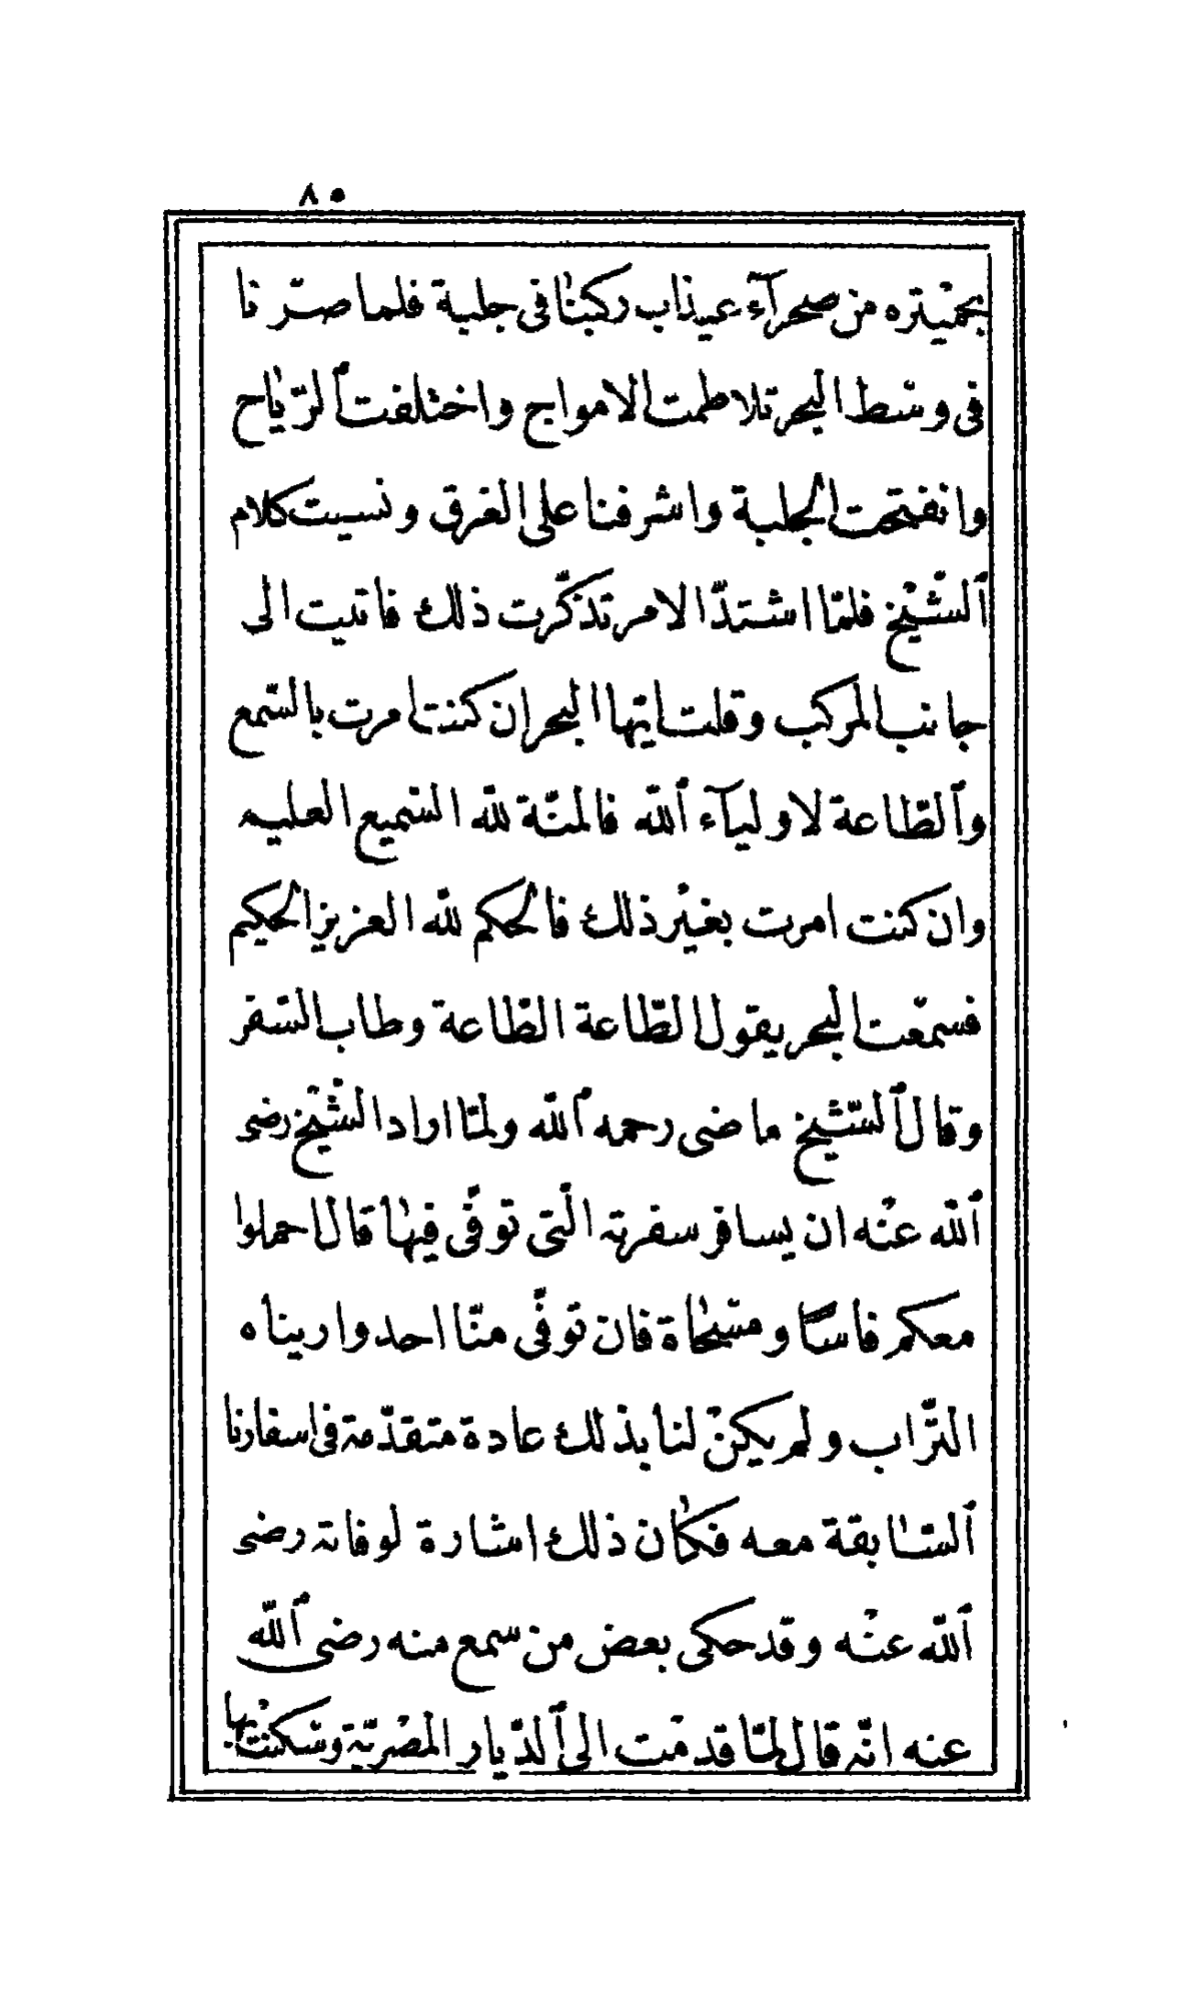 ٨٥
بحميتره من صحرآء عيذاب ركبنا فى جلبة فلما صرنا
فى وسط البحر تلاطمت الامواج واختلفت ٱلرّياح
وانفتحت الجلبة واشرفنا على الغرق ونسيت كلام
ٱلشّيْخ فلمّا اشتدّ الامر تذكّرت ذلك فاتيت الى
جانب المركب وقلت ايّها البحر ان كنت امرت بالسّمع
وٱلطّاعة لاوليآء ٱللّه فالمنّة للّه السّميع العليم
وان كنت امرت بغيْر ذلك فالحكم للّه العزيز الحكيم
فسمعْت البحر يقول الطّاعة الطّاعة وطاب السّفر
وقال ٱلشّيْخ ماضى رحمه ٱللّه ولمّا اراد الشّيْخ رضى
ٱللّه عنْه ان يسافر سفرته الّتى توفّى فيها قال احملوا
معكم فاسًا ومسْحاة فان توفّى منّا احد واريناه
التّراب ولم يكنْ لنا بذلك عادة متقدّمة فى اسفارنا
ٱلسّابقة معه فكان ذلك اشارة لوفاته رضى
ٱللّه عنْه وقدحكى بعض من سمع منه رضى ٱللّه
عنه انّه قال لمّا قدمْت الى ٱلدّيار المصْريّة وسكنْت بها